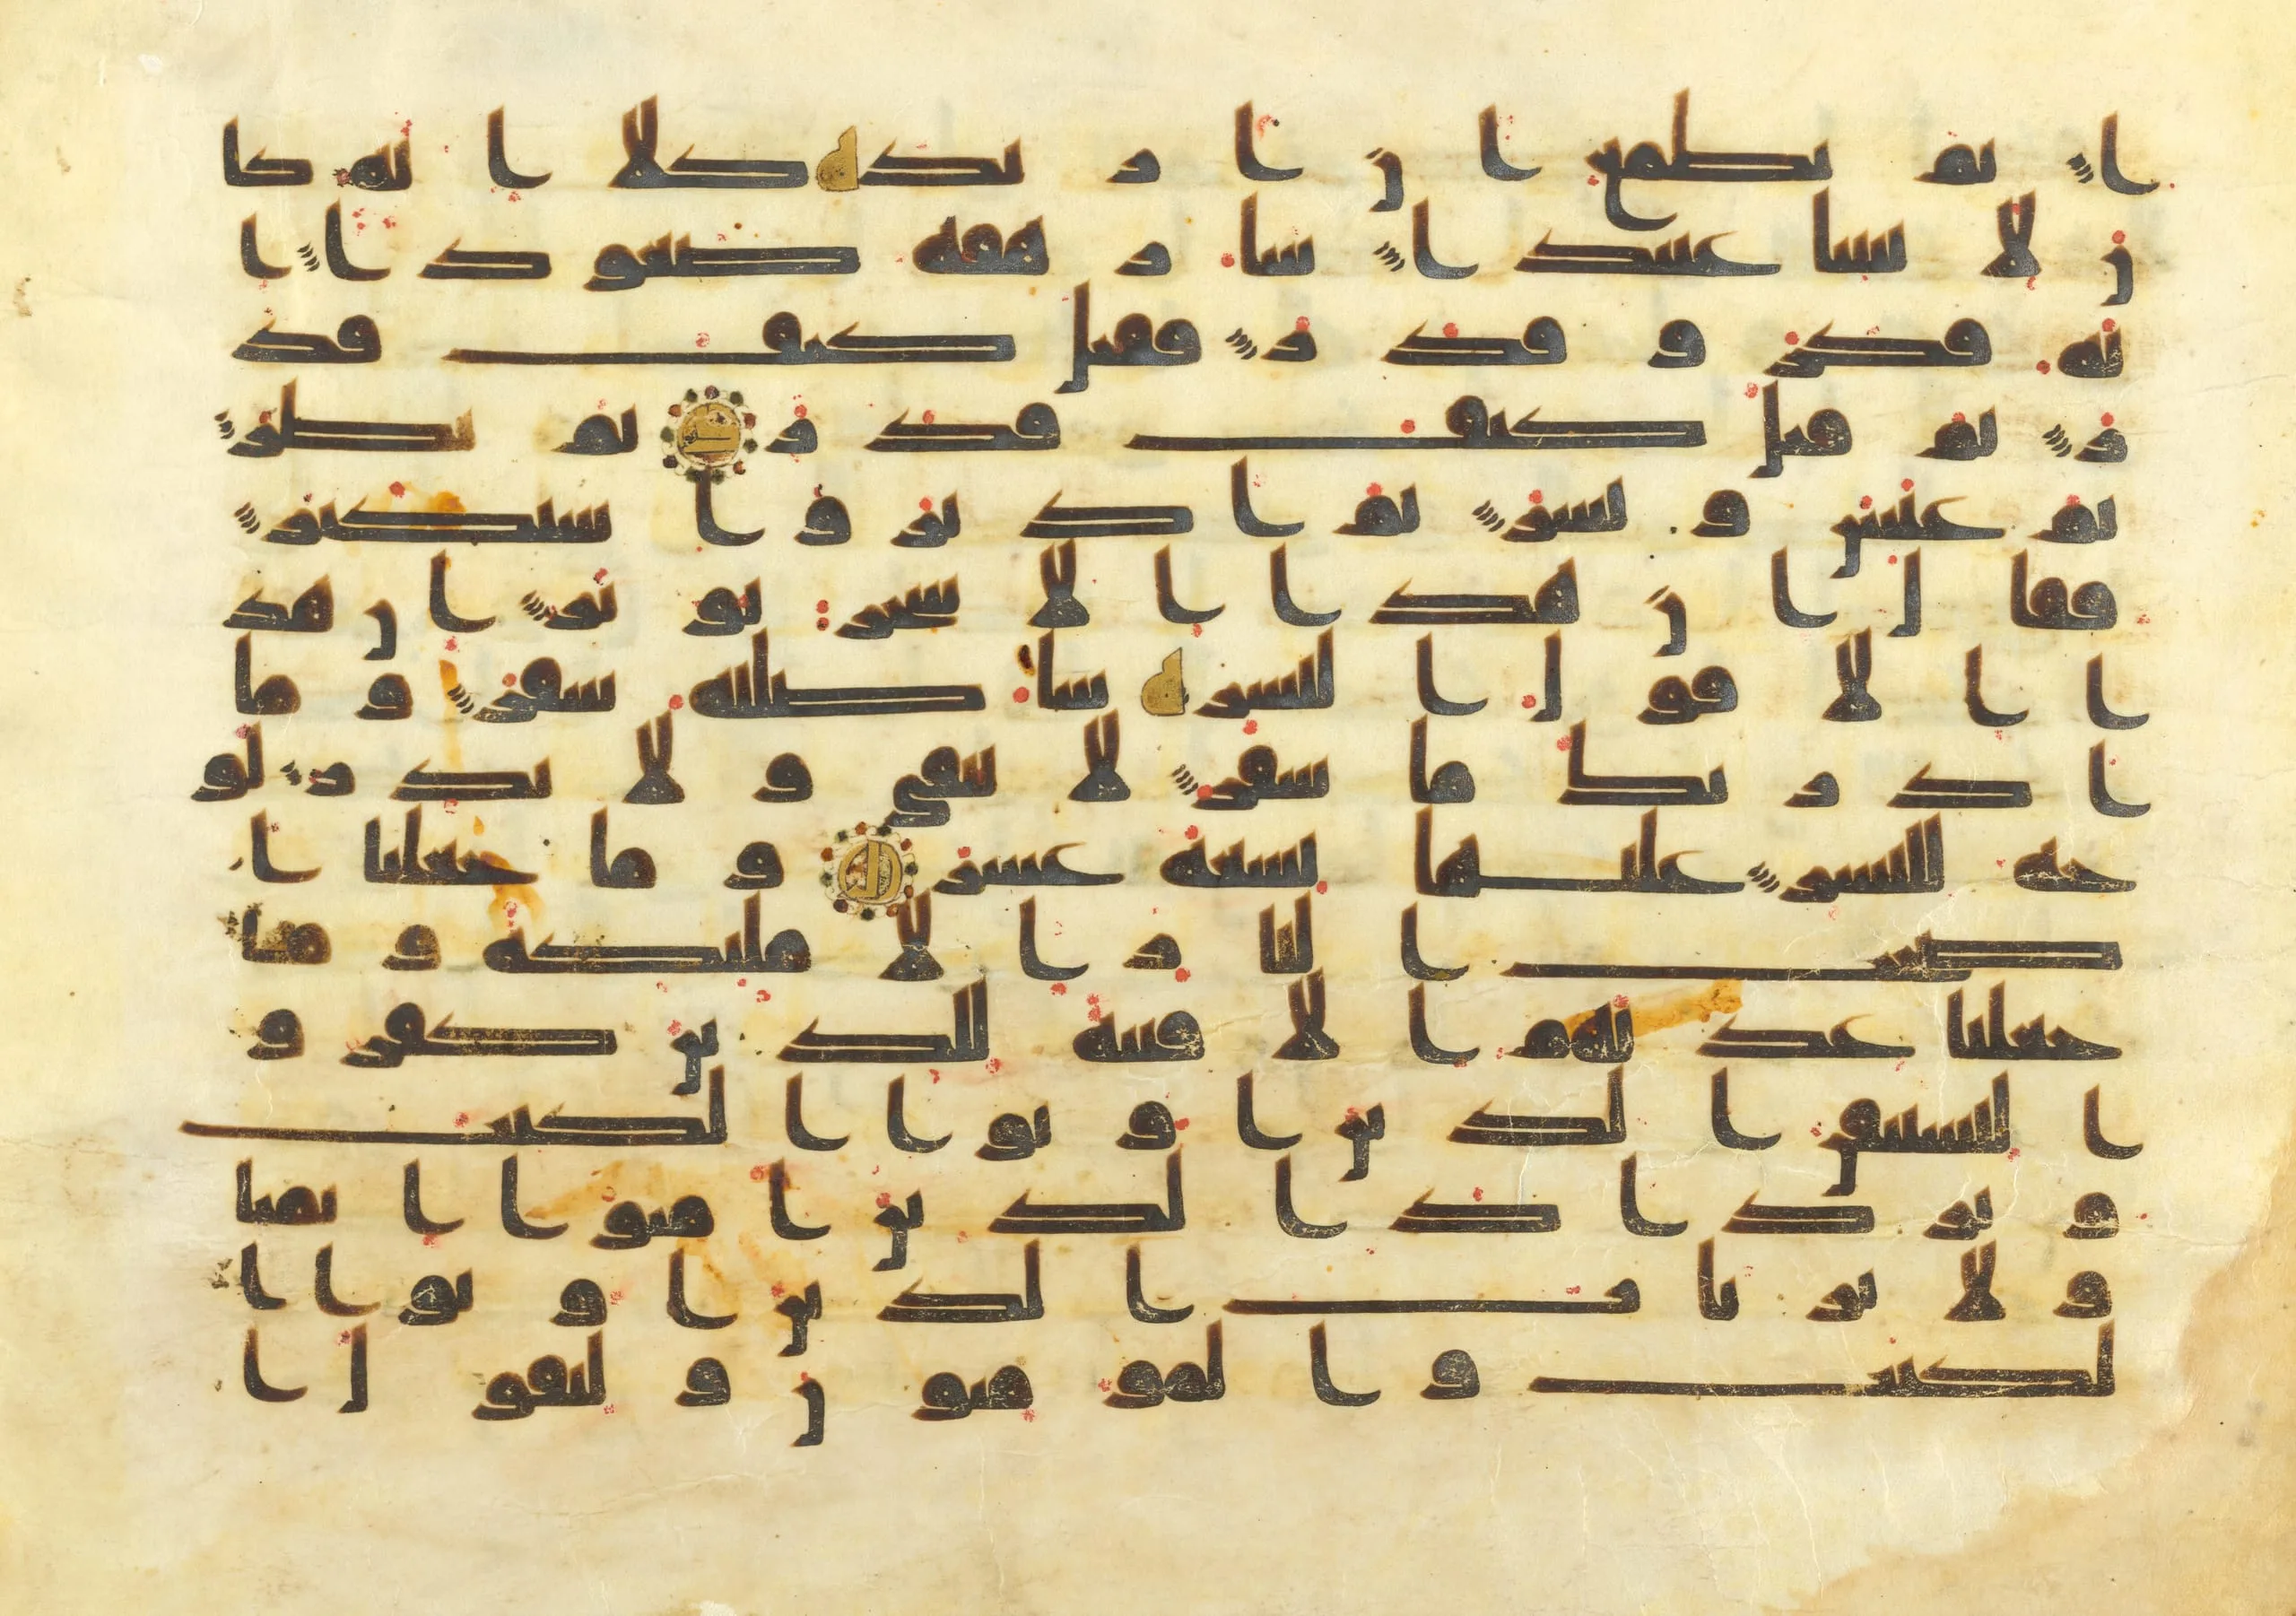 ا ثم يطمع ان ازيد كلا انه كا
ن لايتنا عنيدا سارهقه صعودا ا
نه فكر وقدر فقتل كيف قد
ر ثم قتل كيف قدر ثم نظر
ثم عبس وبسر ثم ادبر واستكبر
فقال ان هذا الا سحر يوثر ان هذ
ا الا قول البشر ساصليه سقر وما
ادريك ما سقر لا تبقي ولا تذر لو
حة للبشر عليها تسعة عشر وما جعلنا ا
صحب النار الا مليكة وما
جعلنا عدتهم الا فتنة للذين كفرو
ا ليستيقن الذين اوتوا الكتب
ويزداد الذين امنوا ايمنا
ولا يرتاب الذين اوتوا ا
لكتب والمومنون وليقول ا